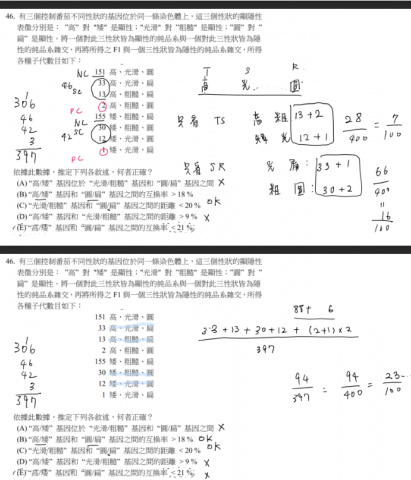 46. 有三個控制番茄不同性狀的基因位於同一條染色體上，這三個性狀的顯隱性
表徵分別是： "高" 對 "矮" 是顯性；"光滑" 對 "粗糙" 是顯性；"圓" 對 "
扁" 是顯性。將一個對此三性狀皆為顯性的純品系與一個對此三性狀皆為隱
性的純品系雜交，再將所得之 F1 與一個三性狀皆為隱性的純品系雜交，所得
各種子代數目如下：
NC 151 高、光滑、圓
46 SC 33 高、光滑、扁
13 高、粗糙、扁
PC 2 高、粗糙、圓
NC 155 矮、粗糙、扁
42 SC 30 矮、粗糙、圓
12 矮、光滑、圓
PC 1 矮、光滑、扁
306
46
42
3
397
T S R
高 光 圓
只看 TS 高 粗 13+2
矮 光 12+1
28/400 = 7/100
只看 SR 光 扁 33+1
粗 圓 30+2
66/400 = 16/100
依據此數據，推定下列各敘述，何者正確？
(A) "高/矮" 基因位於 "光滑/粗糙" 基因和 "圓/扁" 基因之間 X
(B) "高/矮" 基因和 "圓/扁" 基因之間的互換率 > 18 %
(C) "光滑/粗糙" 基因和 "圓/扁" 基因之間的距離 < 20 % ok
(D) "高/矮" 基因和 "光滑/粗糙" 基因之間的距離 > 9 % X
(E) "高/矮" 基因和 "圓/扁" 基因之間的互換率 < 21 %
46. 有三個控制番茄不同性狀的基因位於同一條染色體上，這三個性狀的顯隱性
表徵分別是： "高" 對 "矮" 是顯性；"光滑" 對 "粗糙" 是顯性；"圓" 對 "
扁" 是顯性。將一個對此三性狀皆為顯性的純品系與一個對此三性狀皆為隱
性的純品系雜交，再將所得之 F1 與一個三性狀皆為隱性的純品系雜交，所得
各種子代數目如下：
151 高、光滑、圓
33 高、光滑、扁
13 高、粗糙、扁
2 高、粗糙、圓
155 矮、粗糙、扁
30 矮、粗糙、圓
12 矮、光滑、圓
1 矮、光滑、扁
306
46
42
3
397
88+ 6
33+13+30+12+(2+1)×2
397
94/397 = 94/400 = 23-/100
依據此數據，推定下列各敘述，何者正確？
(A) "高/矮" 基因位於 "光滑/粗糙" 基因和 "圓/扁" 基因之間 X
(B) "高/矮" 基因和 "圓/扁" 基因之間的互換率 > 18 % ok
(C) "光滑/粗糙" 基因和 "圓/扁" 基因之間的距離 < 20 % ok
(D) "高/矮" 基因和 "光滑/粗糙" 基因之間的距離 > 9 % X
(E) "高/矮" 基因和 "圓/扁" 基因之間的互換率 < 21 % X